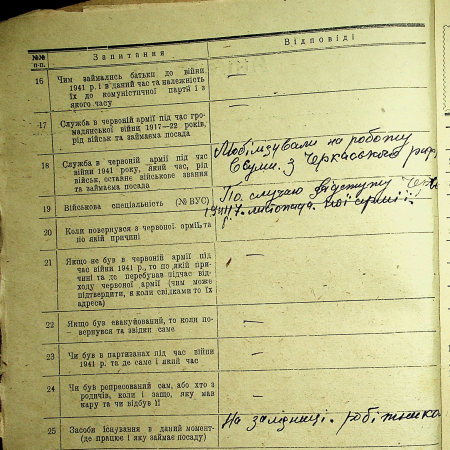 №№ п-п.
Запитання
Відповіді
16 Чим займались батьки до війни
1941 р. і в даний час та належність
їх до комуністичної партії і з
якого часу
—
17 Служба в червоній армії під час гро-
мадянської війни 1917—22 років,
рід військ та займаєма посада
—
18 Служба в червоній армії під час
війни 1941 року, який час, рід
військ, останнє військове звання
та займаєма посада
Мобілізували на роботу
в Суми. з Черкаського
19 Військова спеціальність (№ ВУС)
По случаю відступу
20 Коли повернувся з червоної армії, та
по якій причині
листопада армії
21 Якщо не був в червоній армії під
час війни 1941 р., то по якій при-
чині та де перебував підчас від-
ходу червоної армії (чим може
підтвердити, я коли свідками то їх
адреса)
—
22 Якщо був евакуйований, то коли по-
вернувся та звідки саме
—
23 Чи був в партизанах під час війни
1941 р. та де саме і який час
—
24 Чи був репресований сам, або хто з
родичів, коли і защо, яку мав
кару та чи відбув її
—
25 Засоби існування в даний момент-
(де працює і яку займає посаду)
На залізниці. робітника